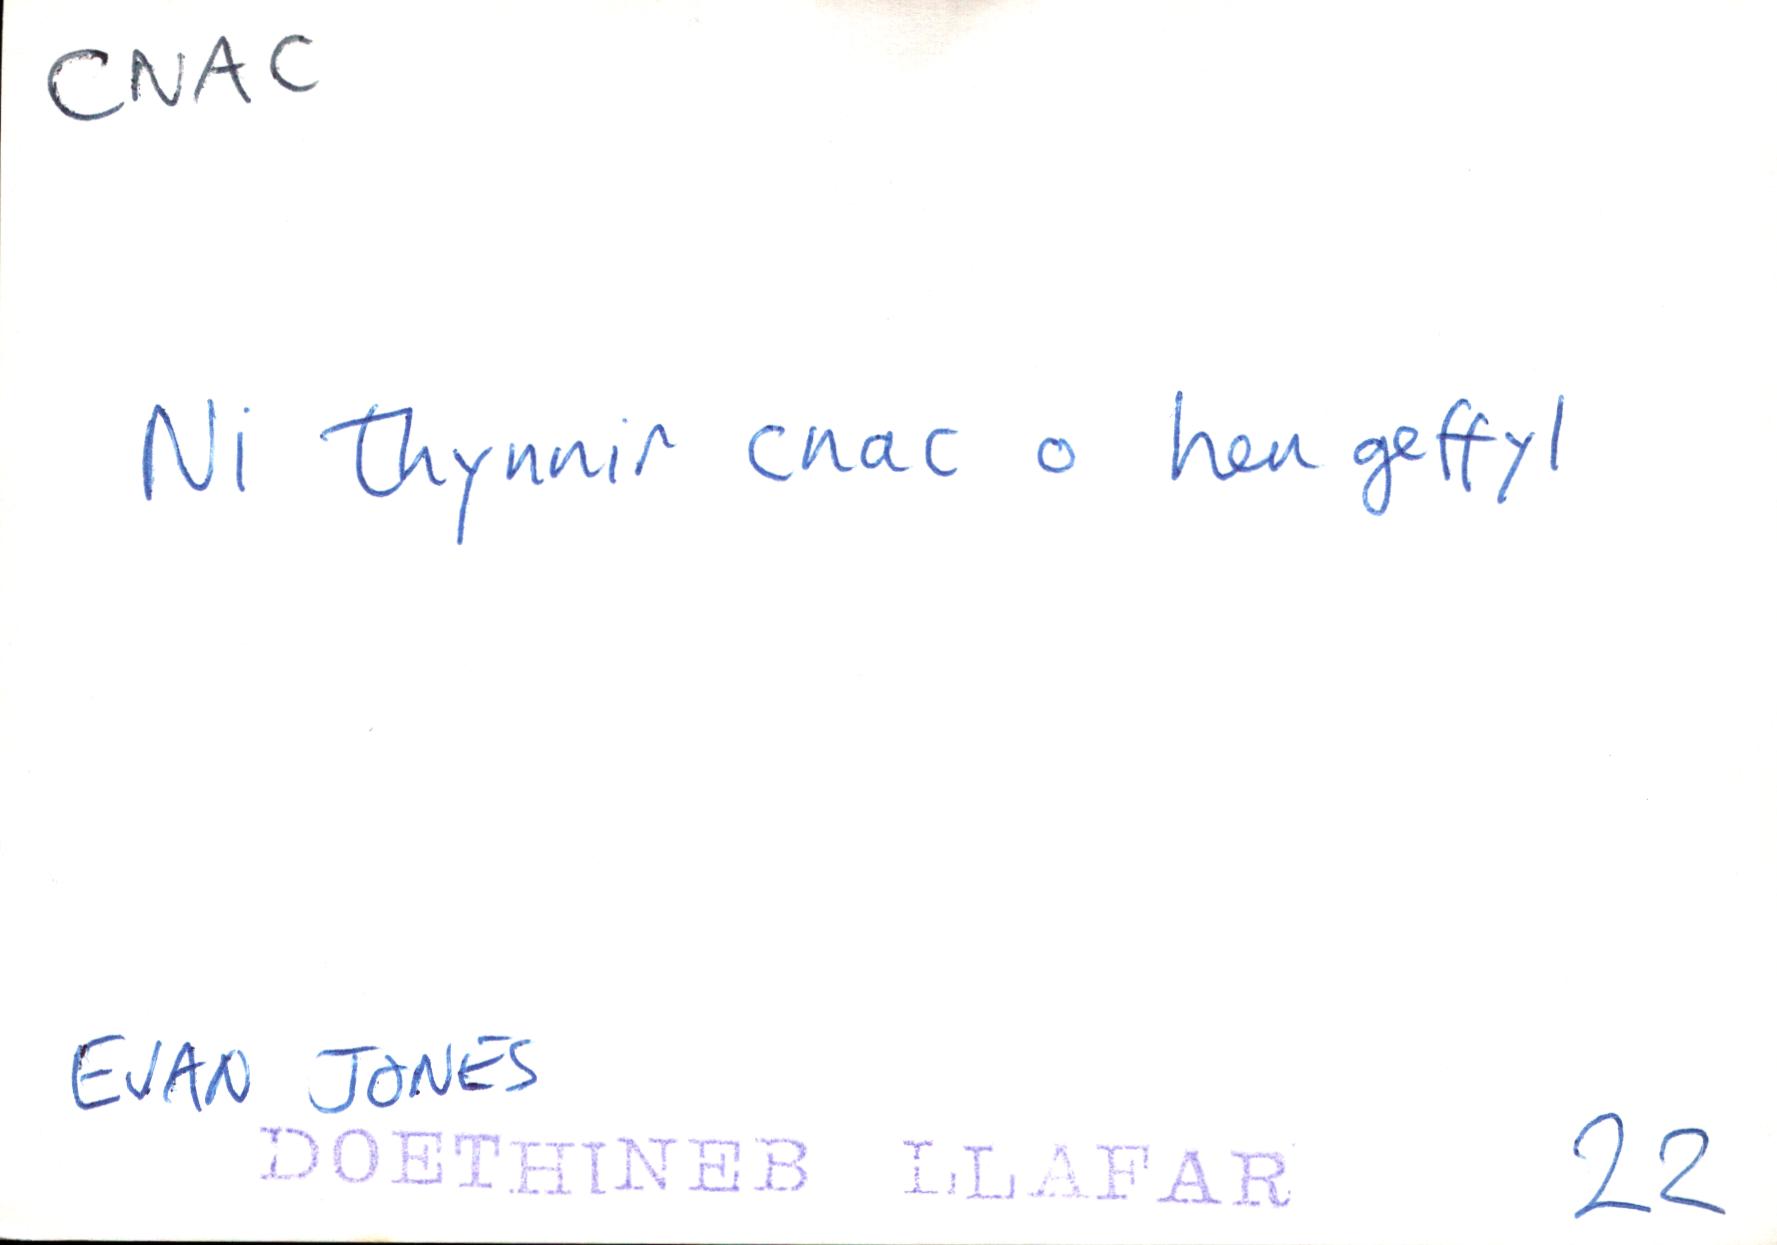 CNAC
Ni thynnir cnac o hen geffyl
EVAN JONES
DOETHINEB LLAFAR
22